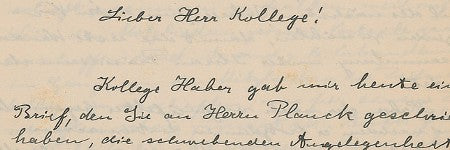 Lieber Herr Kollege!
Kollege Haber gab mir heute ein
Brief, den Sie an Herrn Planck geschrie
haben, die schwebenden Angelegenheit